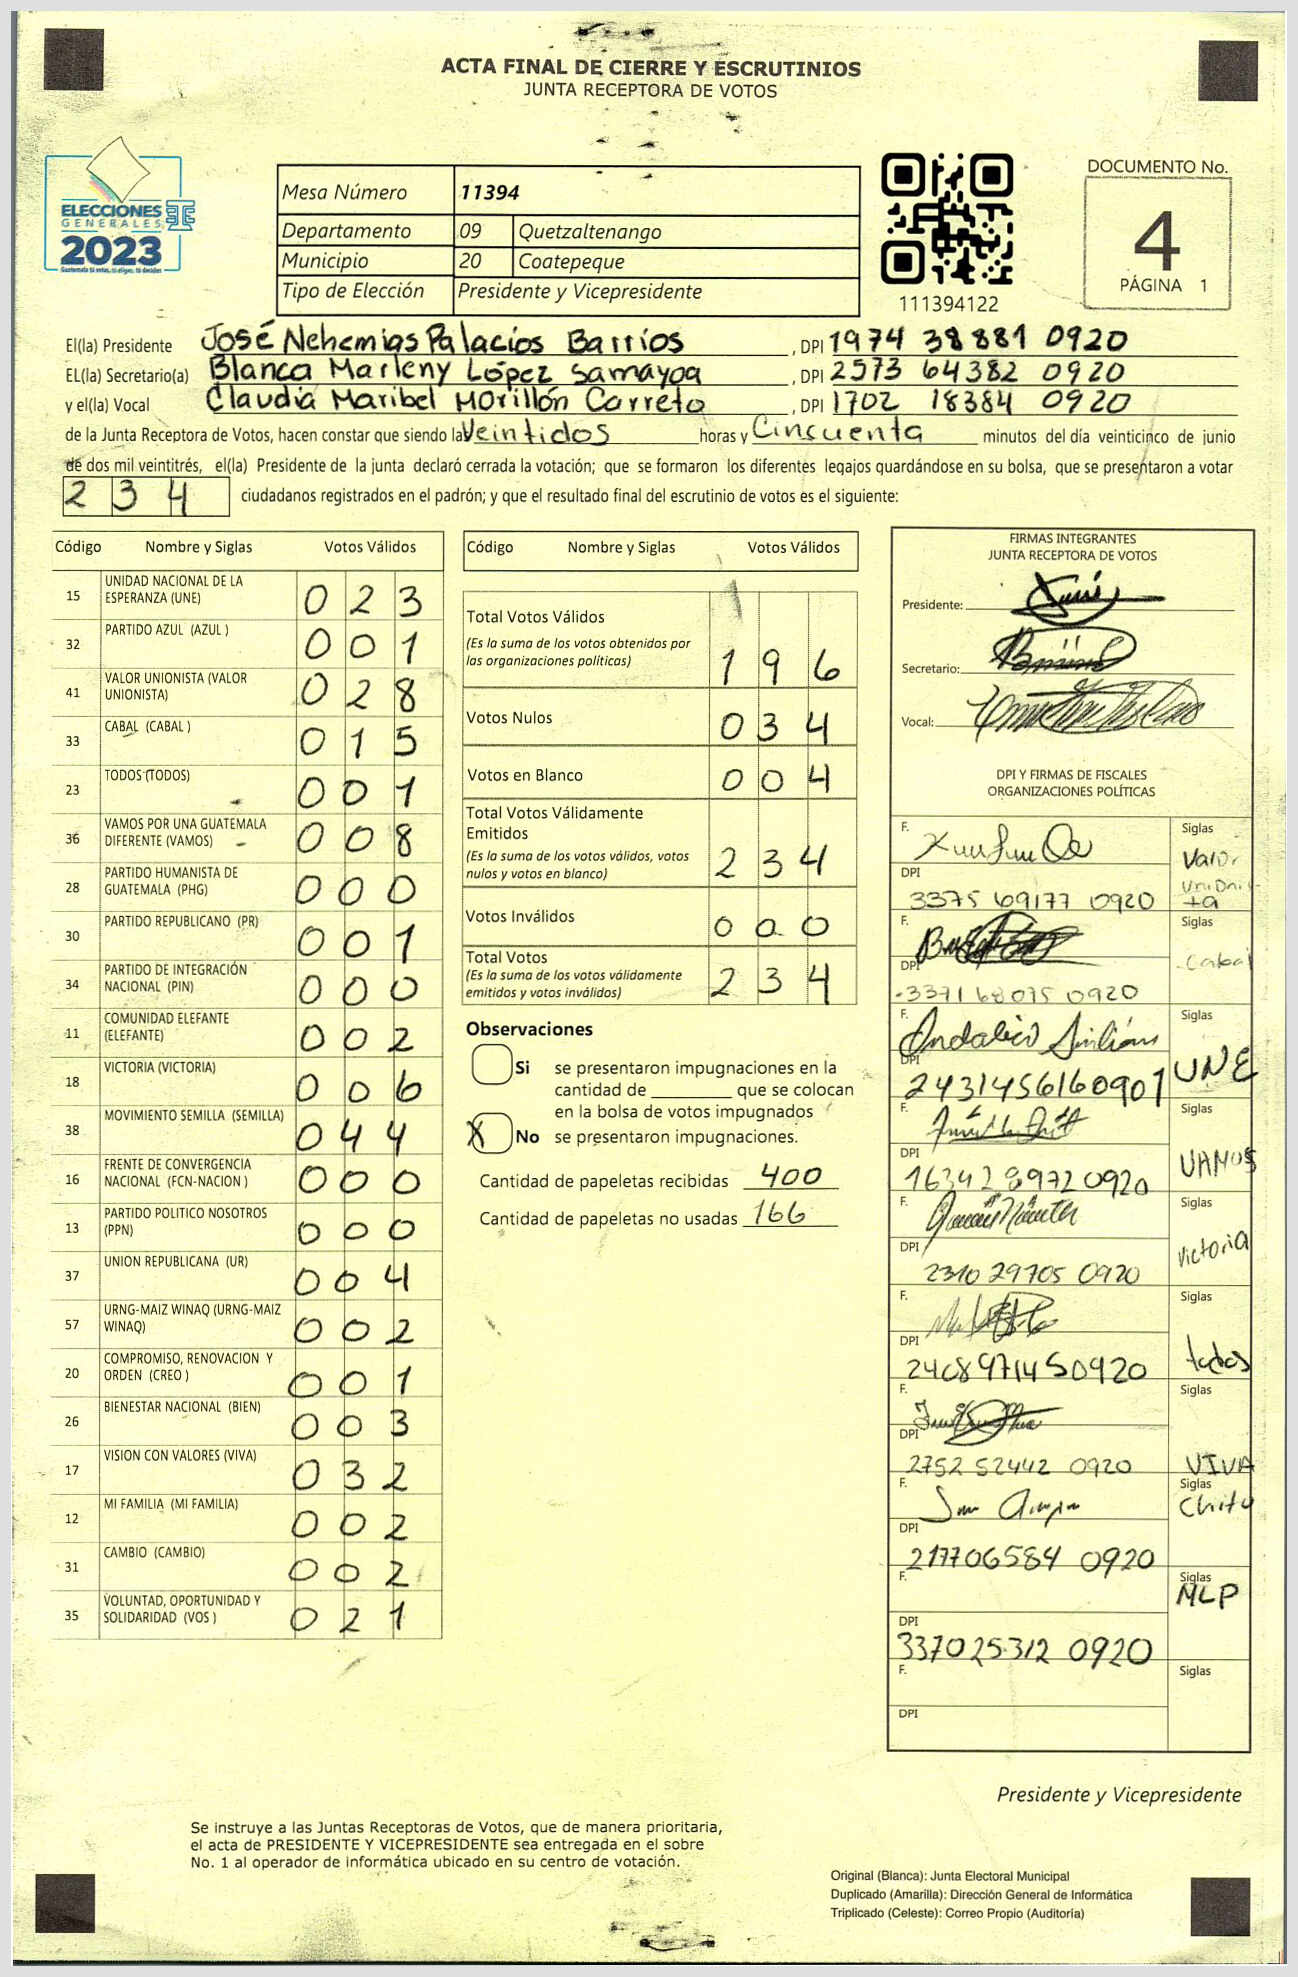 ACTA FINAL DE CIERRE Y ESCRUTINIOS
JUNTA RECEPTORA DE VOTOS
ELECCIONES
GENERALES
2023
Guatemala tú votas, tú eliges, tú decides
Mesa Número 11394
Departamento 09 Quetzaltenango
Municipio 20 Coatepeque
Tipo de Elección Presidente y Vicepresidente
111394122
DOCUMENTO No.
4
PÁGINA 1
El(la) Presidente José Nehemias Palacios Barrios, DPI 1974 38881 0920
EL(la) Secretario(a) Blanca Marleny López Samayoa, DPI 2573 64382 0920
y el(la) Vocal Claudia Maribel Morillón Carreto, DPI 1702 18384 0920
de la Junta Receptora de Votos, hacen constar que siendo las Veintidos horas y Cincuenta minutos del día veinticinco de junio
de dos mil veintitrés, el(la) Presidente de la junta declaró cerrada la votación; que se formaron los diferentes legajos guardándose en su bolsa, que se presentaron a votar
234 ciudadanos registrados en el padrón; y que el resultado final del escrutinio de votos es el siguiente:
Código Nombre y Siglas Votos Válidos
15 UNIDAD NACIONAL DE LA ESPERANZA (UNE) 023
32 PARTIDO AZUL (AZUL ) 001
41 VALOR UNIONISTA (VALOR UNIONISTA) 028
33 CABAL (CABAL ) 015
23 TODOS (TODOS) 001
36 VAMOS POR UNA GUATEMALA DIFERENTE (VAMOS) 008
28 PARTIDO HUMANISTA DE GUATEMALA (PHG) 000
30 PARTIDO REPUBLICANO (PR) 001
34 PARTIDO DE INTEGRACIÓN NACIONAL (PIN) 000
11 COMUNIDAD ELEFANTE (ELEFANTE) 002
18 VICTORIA (VICTORIA) 006
38 MOVIMIENTO SEMILLA (SEMILLA) 044
16 FRENTE DE CONVERGENCIA NACIONAL (FCN-NACION ) 000
13 PARTIDO POLITICO NOSOTROS (PPN) 000
37 UNION REPUBLICANA (UR) 004
57 URNG-MAIZ WINAQ (URNG-MAIZ WINAQ) 002
20 COMPROMISO, RENOVACION Y ORDEN (CREO ) 001
26 BIENESTAR NACIONAL (BIEN) 003
17 VISION CON VALORES (VIVA) 032
12 MI FAMILIA (MI FAMILIA) 002
31 CAMBIO (CAMBIO) 002
35 VOLUNTAD, OPORTUNIDAD Y SOLIDARIDAD (VOS ) 021
Código Nombre y Siglas Votos Válidos
Total Votos Válidos
(Es la suma de los votos obtenidos por
las organizaciones políticas) 196
Votos Nulos 034
Votos en Blanco 004
Total Votos Válidamente
Emitidos
(Es la suma de los votos válidos, votos
nulos y votos en blanco) 234
Votos Inválidos 000
Total Votos
(Es la suma de los votos válidamente
emitidos y votos inválidos) 234
Observaciones
Si se presentaron impugnaciones en la
cantidad de ________ que se colocan
en la bolsa de votos impugnados
X No se presentaron impugnaciones.
Cantidad de papeletas recibidas 400
Cantidad de papeletas no usadas 166
FIRMAS INTEGRANTES
JUNTA RECEPTORA DE VOTOS
Presidente:
Secretario:
Vocal:
DPI Y FIRMAS DE FISCALES
ORGANIZACIONES POLÍTICAS
F. Siglas Valor Unionista
DPI 3375 69177 0920
F. Siglas Cabal
DPI 3371 68075 0920
F. Siglas UNE
DPI 2431456160901
F. Siglas VAMOS
DPI 1634289720920
F. Siglas Victoria
DPI 2310 29705 0920
F. Siglas todos
DPI 2408971450920
F. Siglas VIVA
DPI 2752 52442 0920
F. Siglas
DPI 217706584 0920
F. Siglas MLP
DPI 337025312 0920
F. Siglas
DPI
Presidente y Vicepresidente
Se instruye a las Juntas Receptoras de Votos, que de manera prioritaria,
el acta de PRESIDENTE Y VICEPRESIDENTE sea entregada en el sobre
No. 1 al operador de informática ubicado en su centro de votación.
Original (Blanca): Junta Electoral Municipal
Duplicado (Amarilla): Dirección General de Informática
Triplicado (Celeste): Correo Propio (Auditoría)